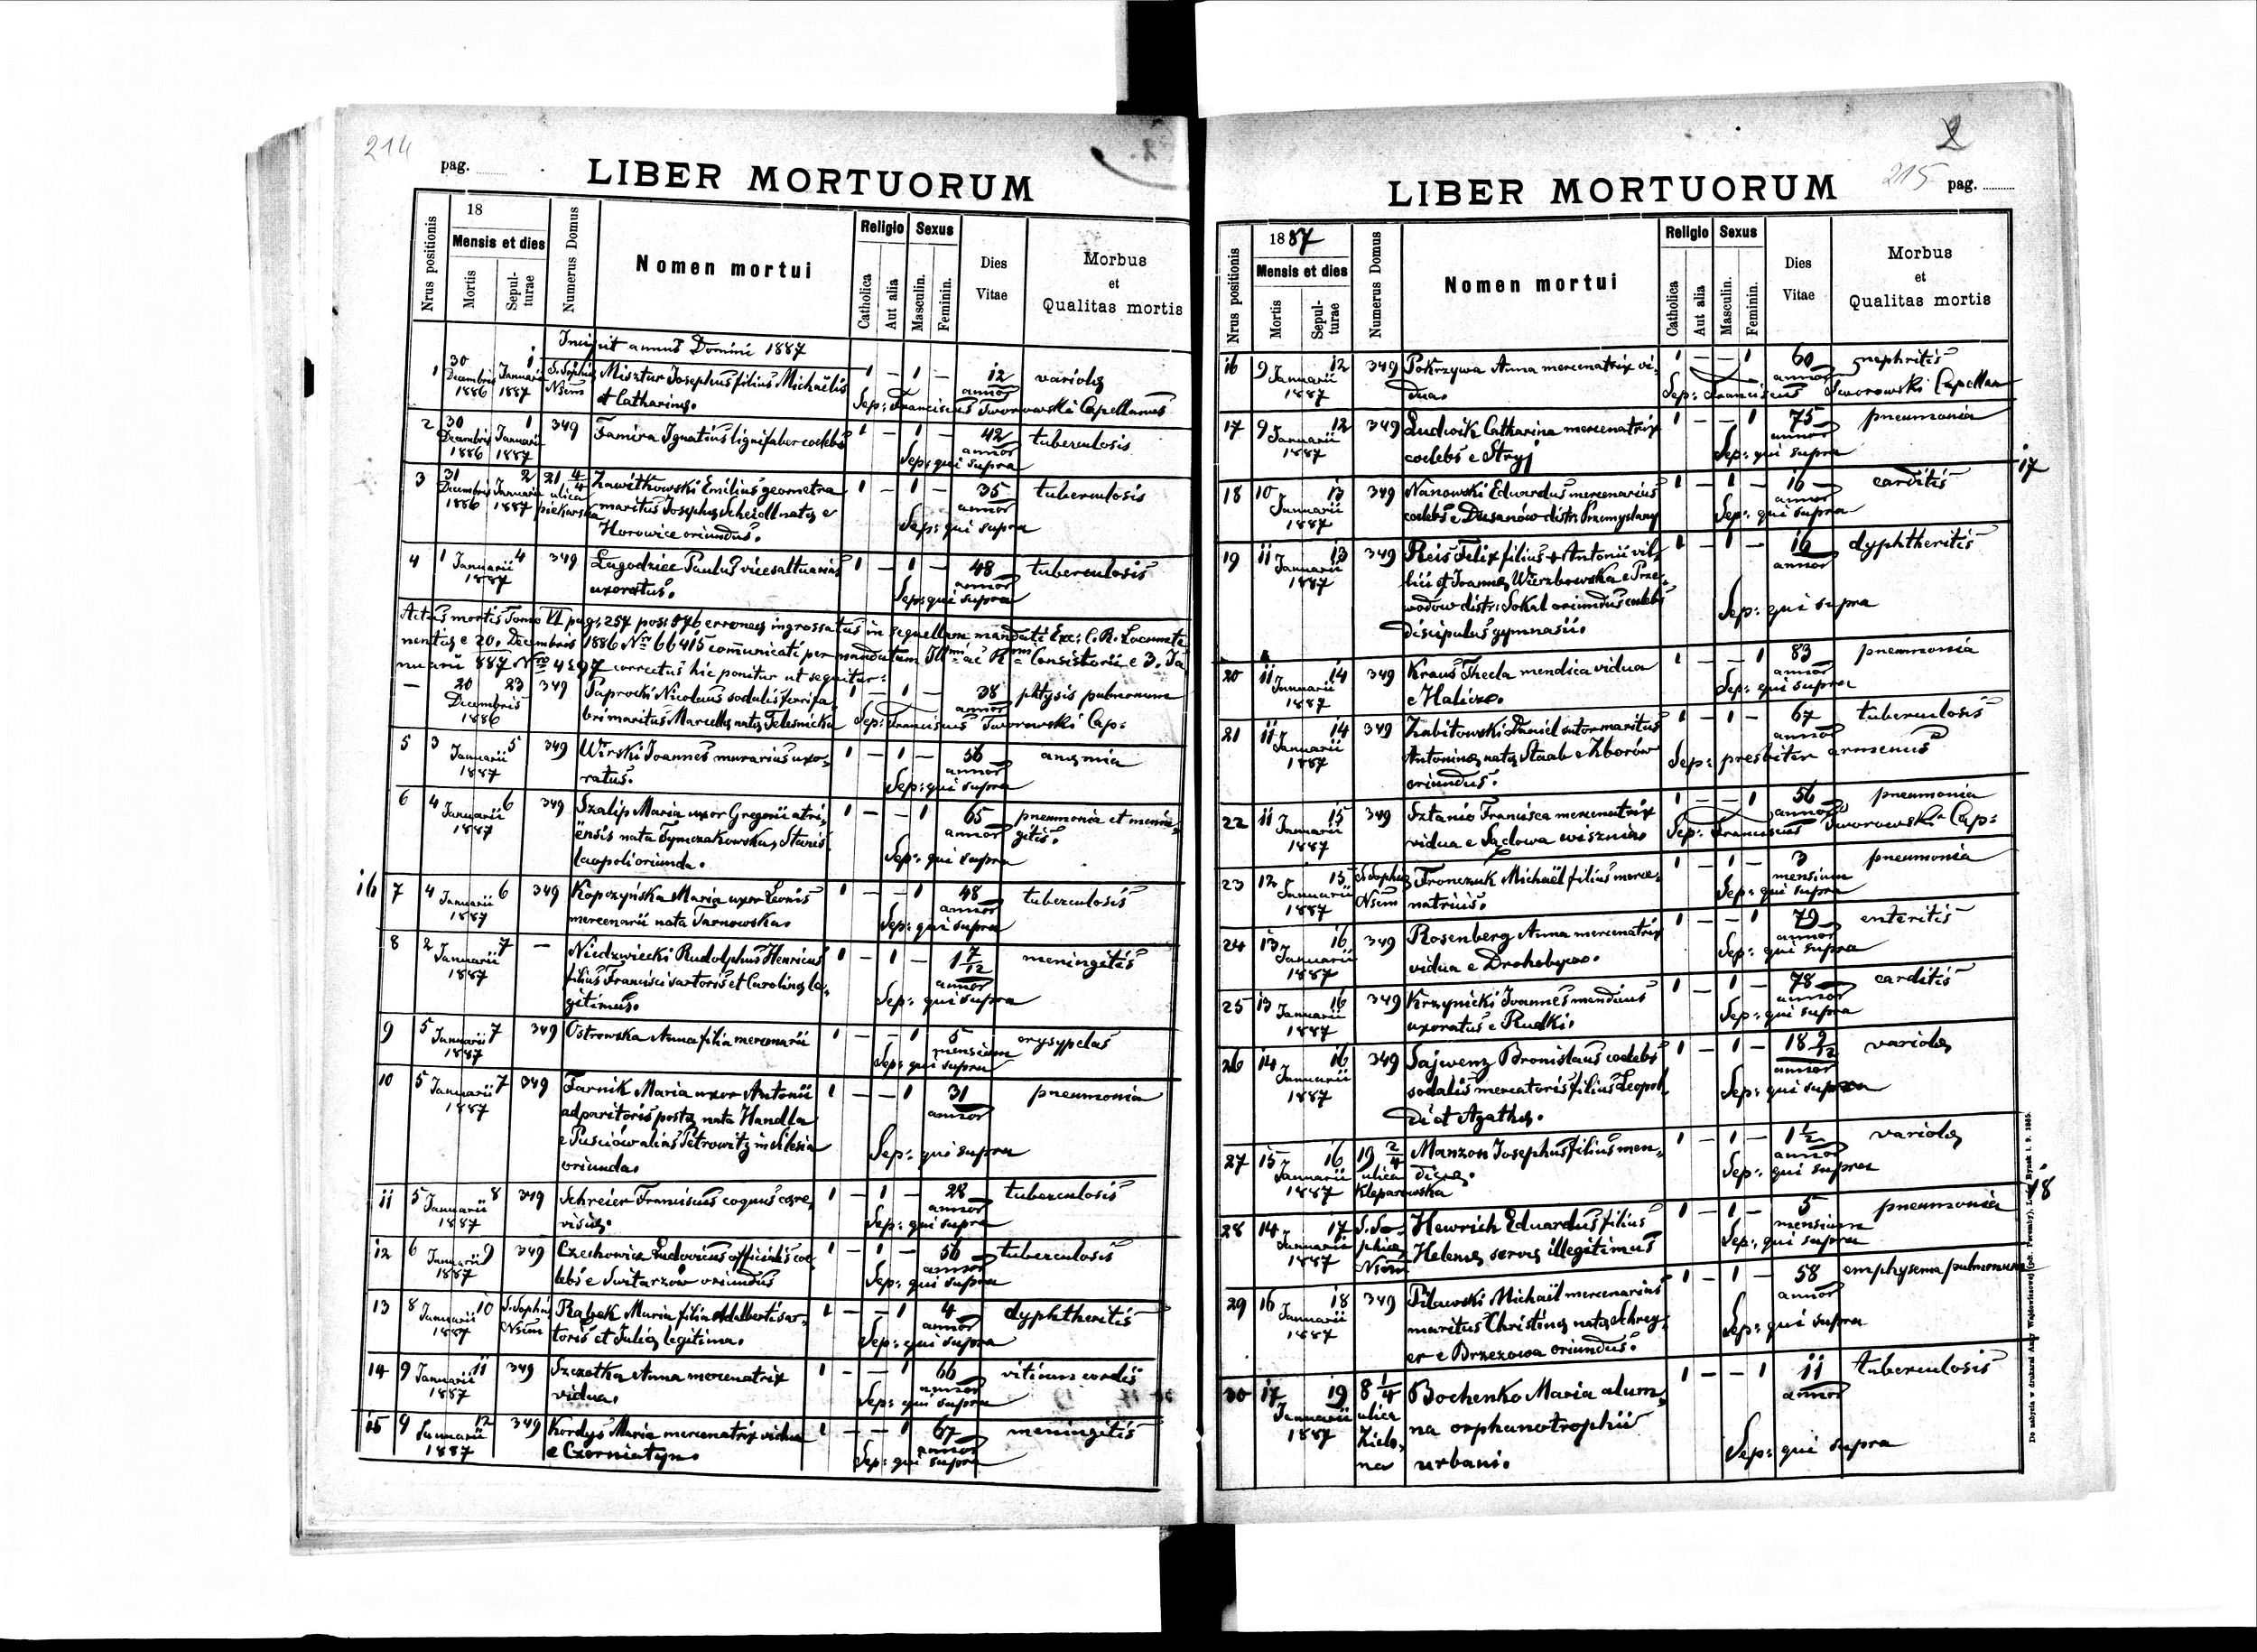 214
pag.
LIBER MORTUORUM
18
Nrus positionis
Mensis et dies
Mortis
Sepulturae
Numerus Domus
Nomen mortui
Religio
Catholica
Aut alia
Sexus
Masculin.
Feminin.
Dies Vitae
Morbus et Qualitas mortis
Incipit annus Domini 1887
1 30 Decembris 1886 1 Januarii 1887 S. Sophia Nsum Misztur Josephus filius Michaëlis 1 - 1 - 12 annor variola
et Catharina. Sep: Franciscus Tworowski Capellanus
2 30 Decembris 1886 1 Januarii 1887 349 Famira Ignatius lignifaber coelebs 1 - 1 - 42 annor tuberculosis
Sep: qui supra
3 31 Decembris 1886 2 Januarii 1887 21 4/4 ulica piekarska Zawitkowski Emilius geometra 1 - 1 - 35 annor tuberculosis
maritus Josepha Scheidl nata e
Horowice oriundus. Sep: qui supra
4 1 Januarii 4 1887 349 Łagodziec Paulus vicesaltuarius 1 - 1 - 48 annor tuberculosis
uxoratus. Sep: qui supra
Actus mortis Tomo VI pag: 257 pos: 576 erronea ingrossatus in sequellam mandati Exc: C. R. Locumte
nentia e 20. Decembris 1886 Nro 66415 communicati per mandatum Illmi ac Rmi Consistorii e 3. Ja
nuarii 887 Nro 4597 correctus hic ponitur ut sequitur:
- 20 23 Decembris 1886 349 Paprocki Nicolaus sodalis ferrifa 1 - 1 - 38 annor phtysis pulmonum
bri maritus Marcella nata Telesnicka Sep: Franciscus Tworowski Cap:
5 3 Januarii 5 1887 349 Wirski Joannes murarius uxo- 1 - 1 - 56 annor anaemia
ratus. Sep: qui supra
6 4 Januarii 6 1887 349 Szalip Maria uxor Gregorii atri- 1 - - 1 65 annor pneumonia et menin-
ensis nata Tymczakowska, Stanis- gitis.
laopoli oriunda. Sep: qui supra
16
7 4 Januarii 6 1887 349 Kopczyńska Maria uxor Leonis 1 - - 1 48 annor tuberculosis
mercenarii nata Tarnowska. Sep: qui supra
8 2 Januarii 7 1887 - Niedzwiecki Rudolphus Henricus 1 - 1 - 1 7/12 annor meningitis
filius Francisci sartoris et Carolina le-
gitimus. Sep: qui supra
9 5 Januarii 7 1887 349 Ostrowska Anna filia mercenarii 1 - - 1 5 mensium erysypelas
Sep: qui supra
10 5 Januarii 7 1887 349 Farnik Maria uxor Antonii 1 - - 1 31 annor pneumonia
adparitoris posta nata Handla
e Pusciów alias Petrowitz in Silesia Sep: qui supra
oriunda.
11 5 Januarii 8 1887 349 Schreier Franciscus coquus cere- 1 - 1 - 28 annor tuberculosis
visia. Sep: qui supra
12 6 Januarii 9 1887 349 Czechowicz Ludovicus officialis coe- 1 - 1 - 56 annor tuberculosis
lebs e Switarzów oriundus Sep: qui supra
13 8 Januarii 10 1887 S. Sophia Nsum Rąbek Maria filia Adalberti sar- 1 - - 1 4 annor dyphtheritis
toris et Julia legitima. Sep: qui supra
14 9 Januarii 11 1887 349 Szczotka Anna mercenatrix 1 - - 1 66 annor vitium cordis
vidua. Sep: qui supra
15 9 Januarii 12 1887 349 Kordyś Maria mercenatrix vidua 1 - - 1 67 annor meningitis
e Czerniatyn. Sep: qui supra
2
215
pag.
LIBER MORTUORUM
1887
Nrus positionis
Mensis et dies
Mortis
Sepulturae
Numerus Domus
Nomen mortui
Religio
Catholica
Aut alia
Sexus
Masculin.
Feminin.
Dies Vitae
Morbus et Qualitas mortis
16 9 Januarii 12 1887 349 Pokrzywa Anna mercenatrix vi- 1 - - 1 60 annor nephritis
dua. Sep: Franciscus Tworowski Capellan
17 9 Januarii 12 1887 349 Ludwik Catharina mercenatrix 1 - - 1 75 annor pneumonia
coelebs e Stryj Sep: qui supra
17
18 10 Januarii 13 1887 349 Nanowski Eduardus mercenarius 1 - 1 - 16 annor carditis
coelebs e Dusanów distr: Przemyslany Sep: qui supra
19 11 Januarii 13 1887 349 Reis Felix filius + Antonii vil- 1 - 1 - 16 annor dyphtheritis
lici et Joanna Wierzbowska e Prze-
wodow distr: Sokal oriundus coelebs Sep: qui supra
discipulus gymnasii.
20 11 Januarii 14 1887 349 Kraus Thecla mendica vidua 1 - - 1 83 annor pneumonia
e Halicz. Sep: qui supra
21 11 Januarii 14 1887 349 Zabitowski Daniel sutor maritus 1 - 1 - 67 annor tuberculosis
Antonina nata Staab e Zborów Sep: presbiter armenus
oriundus.
22 11 Januarii 15 1887 349 Sztanio Francisca mercenatrix 1 - - 1 56 annor pneumonia
vidua e Sądowa wisznia. Sep: Franciscus Tworowski Cap:
23 12 Januarii 15 1887 S. Sophia Nsum Fronczuk Michaël filius merce- 1 - 1 - 3 mensium pneumonia
natricis. Sep: qui supra
24 13 Januarii 16 1887 349 Rosenberg Anna mercenatrix 1 - - 1 79 annor enteritis
vidua e Drohobycz. Sep: qui supra
25 13 Januarii 16 1887 349 Krzynicki Joannes mendicus 1 - 1 - 78 annor carditis
uxoratus e Rudki. Sep: qui supra
26 14 Januarii 16 1887 349 Sajwenz Bronislaus coelebs 1 - 1 - 18 9/12 annor variola
sodalis mercatoris filius Leopol-
di et Agatha. Sep: qui supra
27 15 Januarii 16 1887 19 2/4 ulica Kleparowska Manzon Josephus filius men- 1 - 1 - 1 1/2 annor variola
dica. Sep: qui supra
18
28 14 Januarii 17 1887 S. Sophia Nsum Hewrich Eduardus filius 1 - 1 - 5 mensium pneumonia
Helena serva illegitimus Sep: qui supra
29 16 Januarii 18 1887 349 Pilawski Michaël mercenarius 1 - 1 - 58 annor emphysema pulmonum
maritus Christina nata Schrey-
er e Brzezowa oriundus. Sep: qui supra
30 17 Januarii 19 1887 8 1/4 ulica Zielona Bochenko Maria alum- 1 - - 1 11 annor tuberculosis
na orphanotrophii
urbani. Sep: qui supra